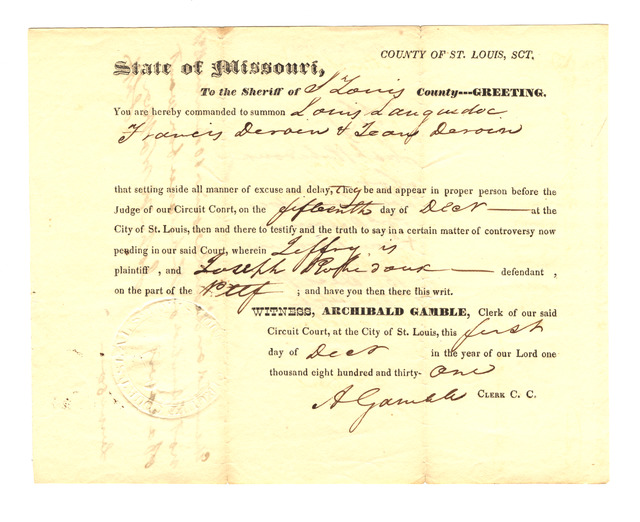 COUNTY OF ST. LOUIS, SCT.
State of Missouri,
To the Sheriff of St Louis County---GREETING.
You are hereby commanded to summon Louis Languedoc
Francis Deroin & Jean Deroin
that setting aside all manner of excuse and delay, they be and appear in proper person before the
Judge of our Circuit Court, on the fifteenth day of Decr — at the
City of St. Louis, then and there to testify and the truth to say in a certain matter of controversy now
pending in our said Court, wherein Jeffry is
plaintiff , and Joseph Robidoux — defendant ,
on the part of the Pltff ; and have you then there this writ.
WITNESS, ARCHIBALD GAMBLE, Clerk of our said
Circuit Court, at the City of St. Louis, this first
day of Decr in the year of our Lord one
thousand eight hundred and thirty- One
A Gamble CLERK C. C.